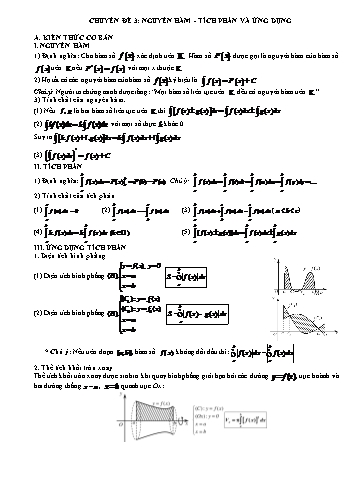 CHUYÊN ĐỀ 3: NGUYÊN HÀM - TÍCH PHÂN VÀ ỨNG DỤNG
A. KIẾN THỨC CƠ BẢN
I. NGUYÊN HÀM
1) Định nghĩa: Cho hàm số f(x) xác định trên K. Hàm số F(x) được gọi là nguyên hàm của hàm số
f(x) trên K nếu F'(x) = f(x) với mọi x thuộc K.
2) Họ tất cả các nguyên hàm của hàm số f(x) ký hiệu là ∫f(x) = F(x) + C
Chú ý: Người ta chứng minh được rằng: "Mọi hàm số liên tục trên K đều có nguyên hàm trên K."
3) Tính chất của nguyên hàm.
(1) Nếu f, g là hai hàm số liên tục trên K thì ∫[f(x)±g(x)]dx = ∫f(x)dx ± ∫g(x)dx
(2) ∫kf(x)dx = k∫f(x)dx với mọi số thực k khác 0.
Suy ra
(3) (∫f(x)dx)' = f(x) + C
II. TÍCH PHÂN
1) Định nghĩa: ∫f(x)dx = F(x) = F(b) - F(a). Chú ý:
2) Tính chất của tích phân
(1) ∫f(x)dx = 0 (2) ∫f(x)dx = -∫f(x)dx (3) ∫f(x)dx + ∫f(x)dx = ∫f(x)dx (a<b<c)
(4) ∫k.f(x)dx = k.∫f(x)dx (k∈R) (5) ∫[f(x)±g(x)]dx = ∫f(x)dx ± ∫g(x)dx
III. ỨNG DỤNG TÍCH PHÂN
1. Diện tích hình phẳng
(1) Diện tích hình phẳng (H): y = f(x), y = 0 x = a x = b S = ∫|f(x)|dx
(2) Diện tích hình phẳng (H): (C₁): y = f(x) (C₂): y = g(x) x = a x = b S = ∫|f(x) - g(x)|dx
* Chú ý: Nếu trên đoạn [a;b], hàm số f(x) không đổi dấu thì: ∫|f(x)|dx = |∫f(x)dx|
2. Thể tích khối tròn xoay
Thể tích khối tròn xoay được sinh ra khi quay hình phẳng giới hạn bởi các đường y = f(x), trục hoành và
hai đường thẳng x = a, x = b quanh trục Ox:
(C): y = f(x)
(Ox): y = 0
x = a
x = b